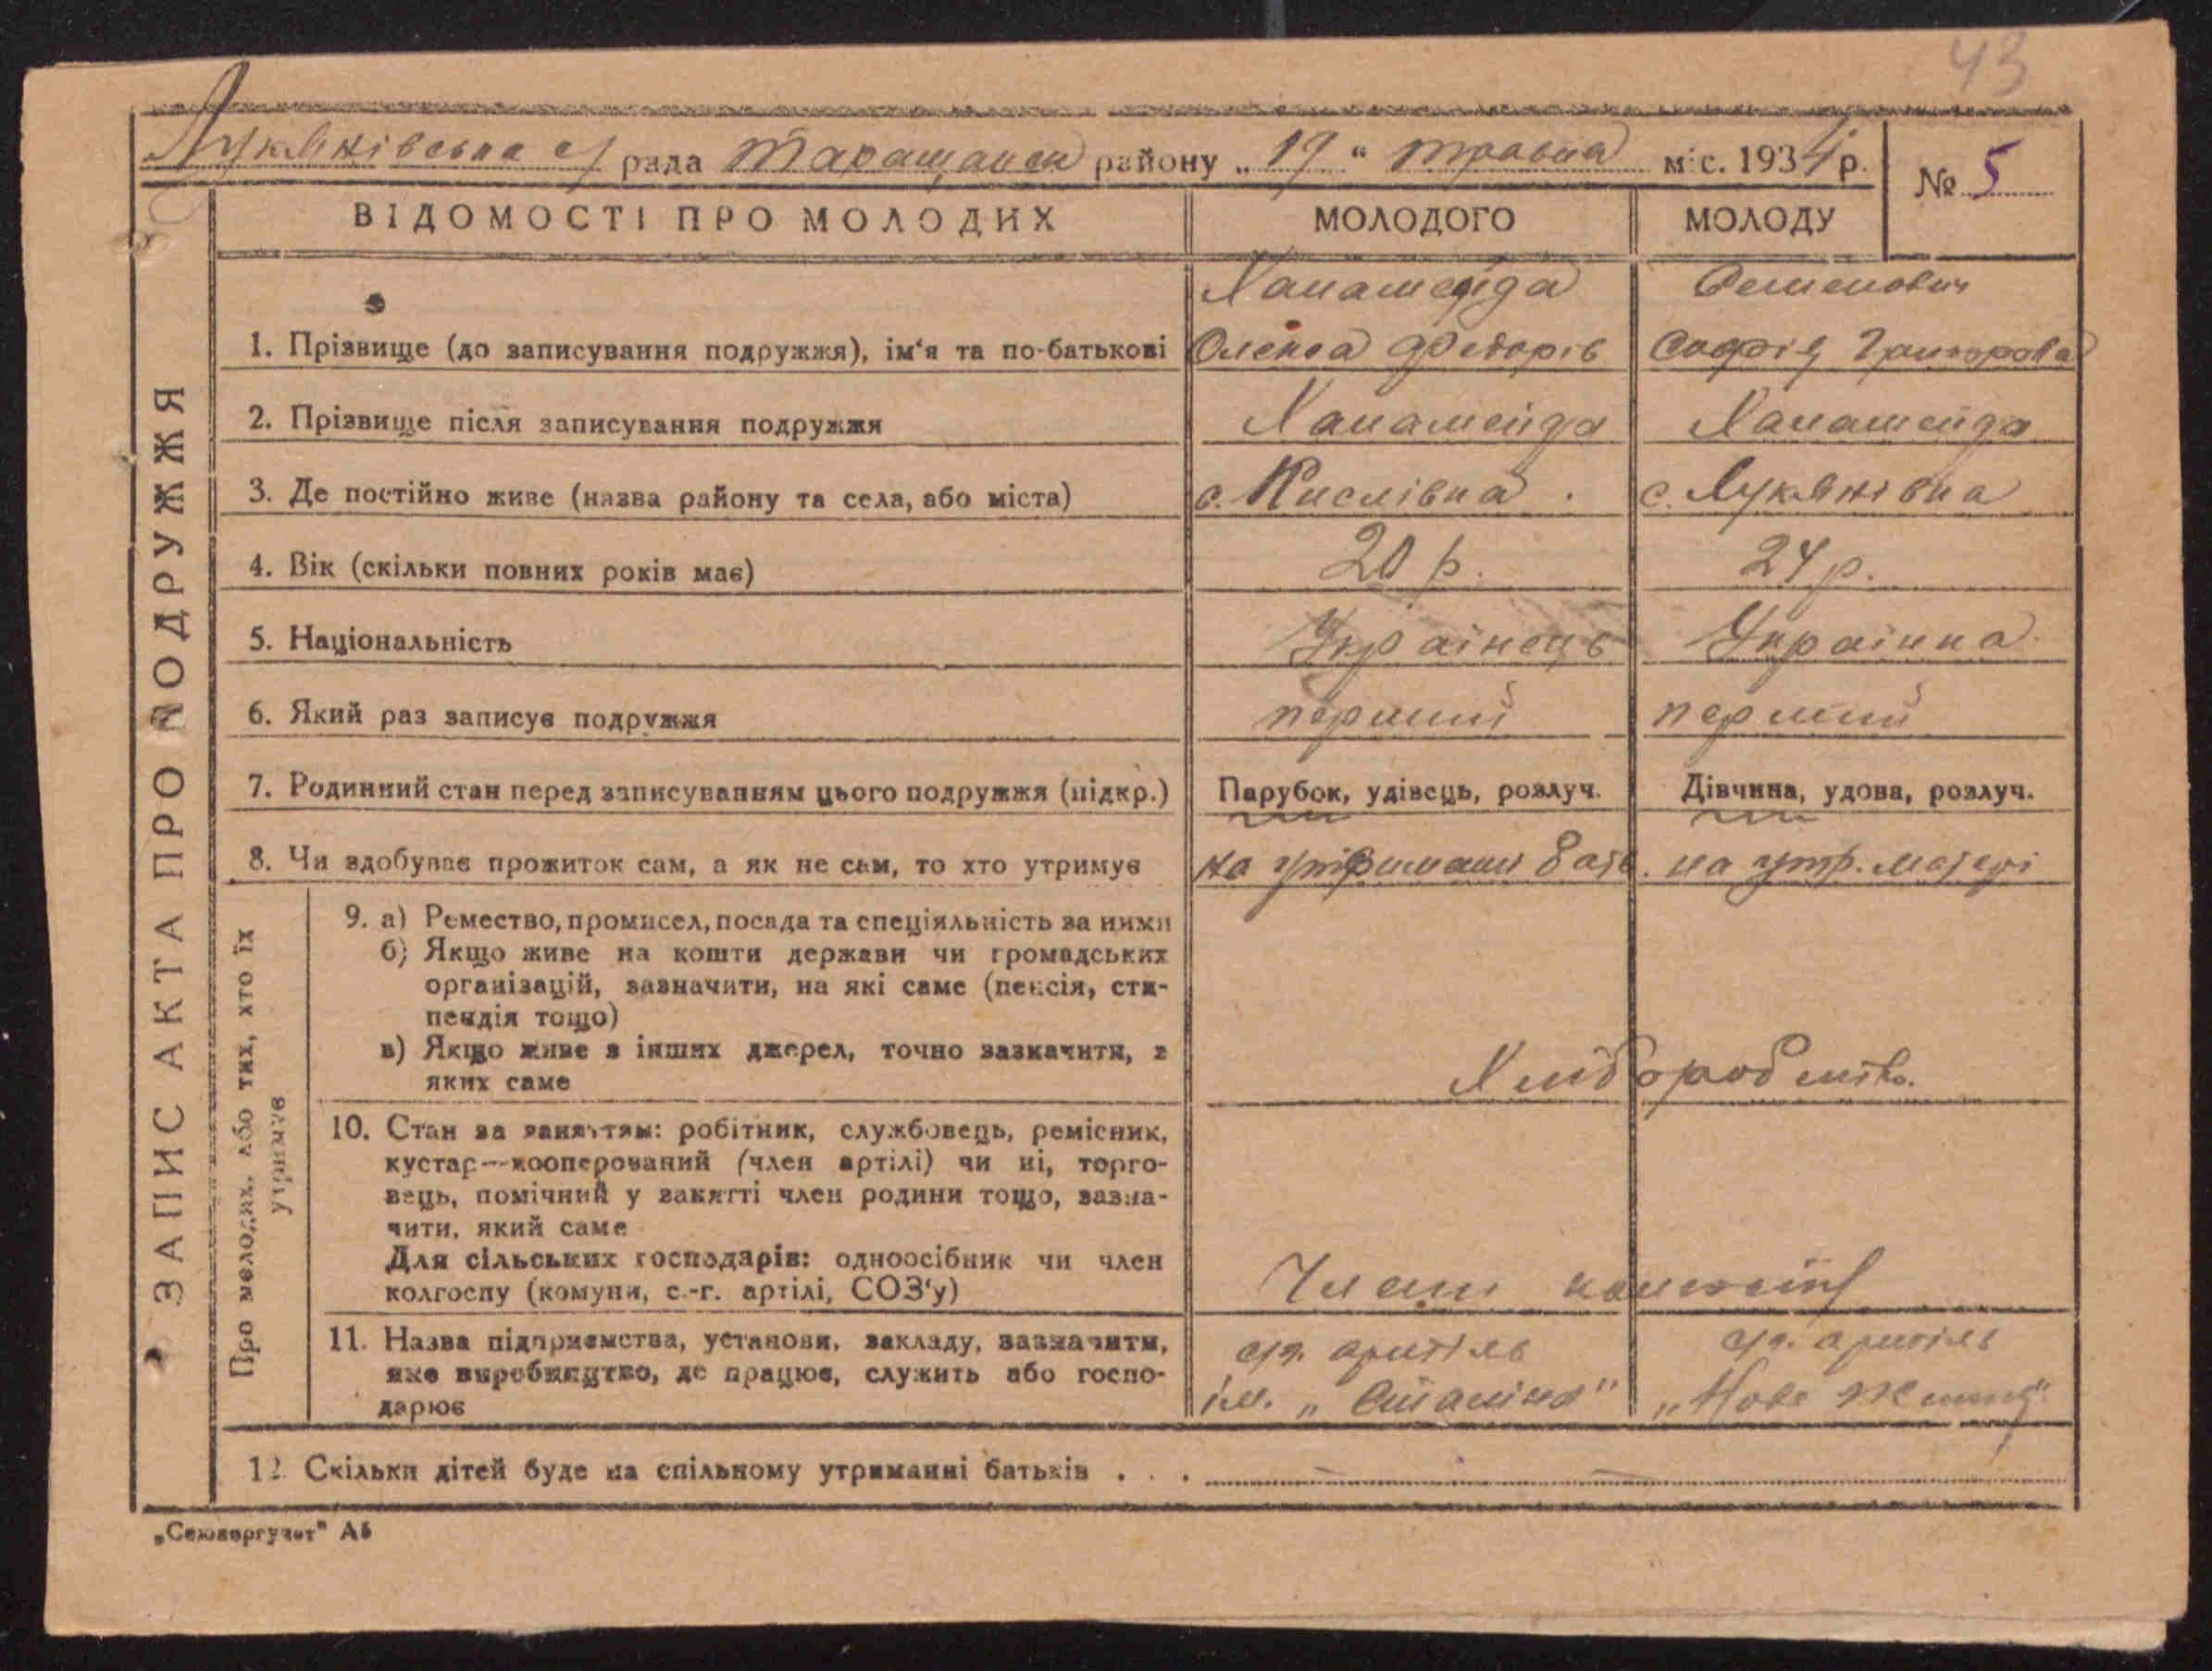 43
Лукянівська с/рада Таращанськ району „19“ травня міс. 1934 р.
№ 5
ЗАПИС АКТА ПРО ПОДРУЖЖЯ
ВІДОМОСТІ ПРО МОЛОДИХ МОЛОДОГО МОЛОДУ
Семенович
1. Прізвище (до записування подружжя), ім‘я та по-батькові Олекса Федорів Софія Григорова
2. Прізвище після записування подружжя
3. Де постійно живе (назва району та села, або міста) с. Кислівка с. Лукянівка
4. Вік (скільки повних років має) 20 р. 24 р.
5. Національність Українець Українка
6. Який раз записує подружжя перший перший
7. Родинний стан перед записуванням цього подружжя (підкр.) Парубок, удівець, розлуч. Дівчина, удова, розлуч.
8. Чи здобуває прожиток сам, а як не сам, то хто утримує на утриманні батьк. на утр. матері
Про молодих, або тих, хто їх
утримує
9. а) Ремество, промисел, посада та спеціяльність за ними
б) Якщо живе на кошти держави чи громадських
організацій, зазначити, на які саме (пенсія, сти-
пендія тощо)
в) Якщо живе з інших джерел, точно зазначити, з
яких саме Хліборобство.
10. Стан за заняттям: робітник, службовець, ремісник,
кустар—кооперований (член артілі) чи ні, торго-
вець, помічний у занятті член родини тощо, зазна-
чити, який саме
Для сільських господарів: одноосібник чи член
колгоспу (комуни, с.-г. артілі, СОЗ‘у) Члени
11. Назва підприємства, установи, закладу, зазначити, с/г. артіль с/г. артіль
яке виробництво, де працює, служить або госпо- ім. „Сталіна" „Нове Життя"
дарює
12. Скільки дітей буде на спільному утриманні батьків . . . —
„Союзоргучет" А5